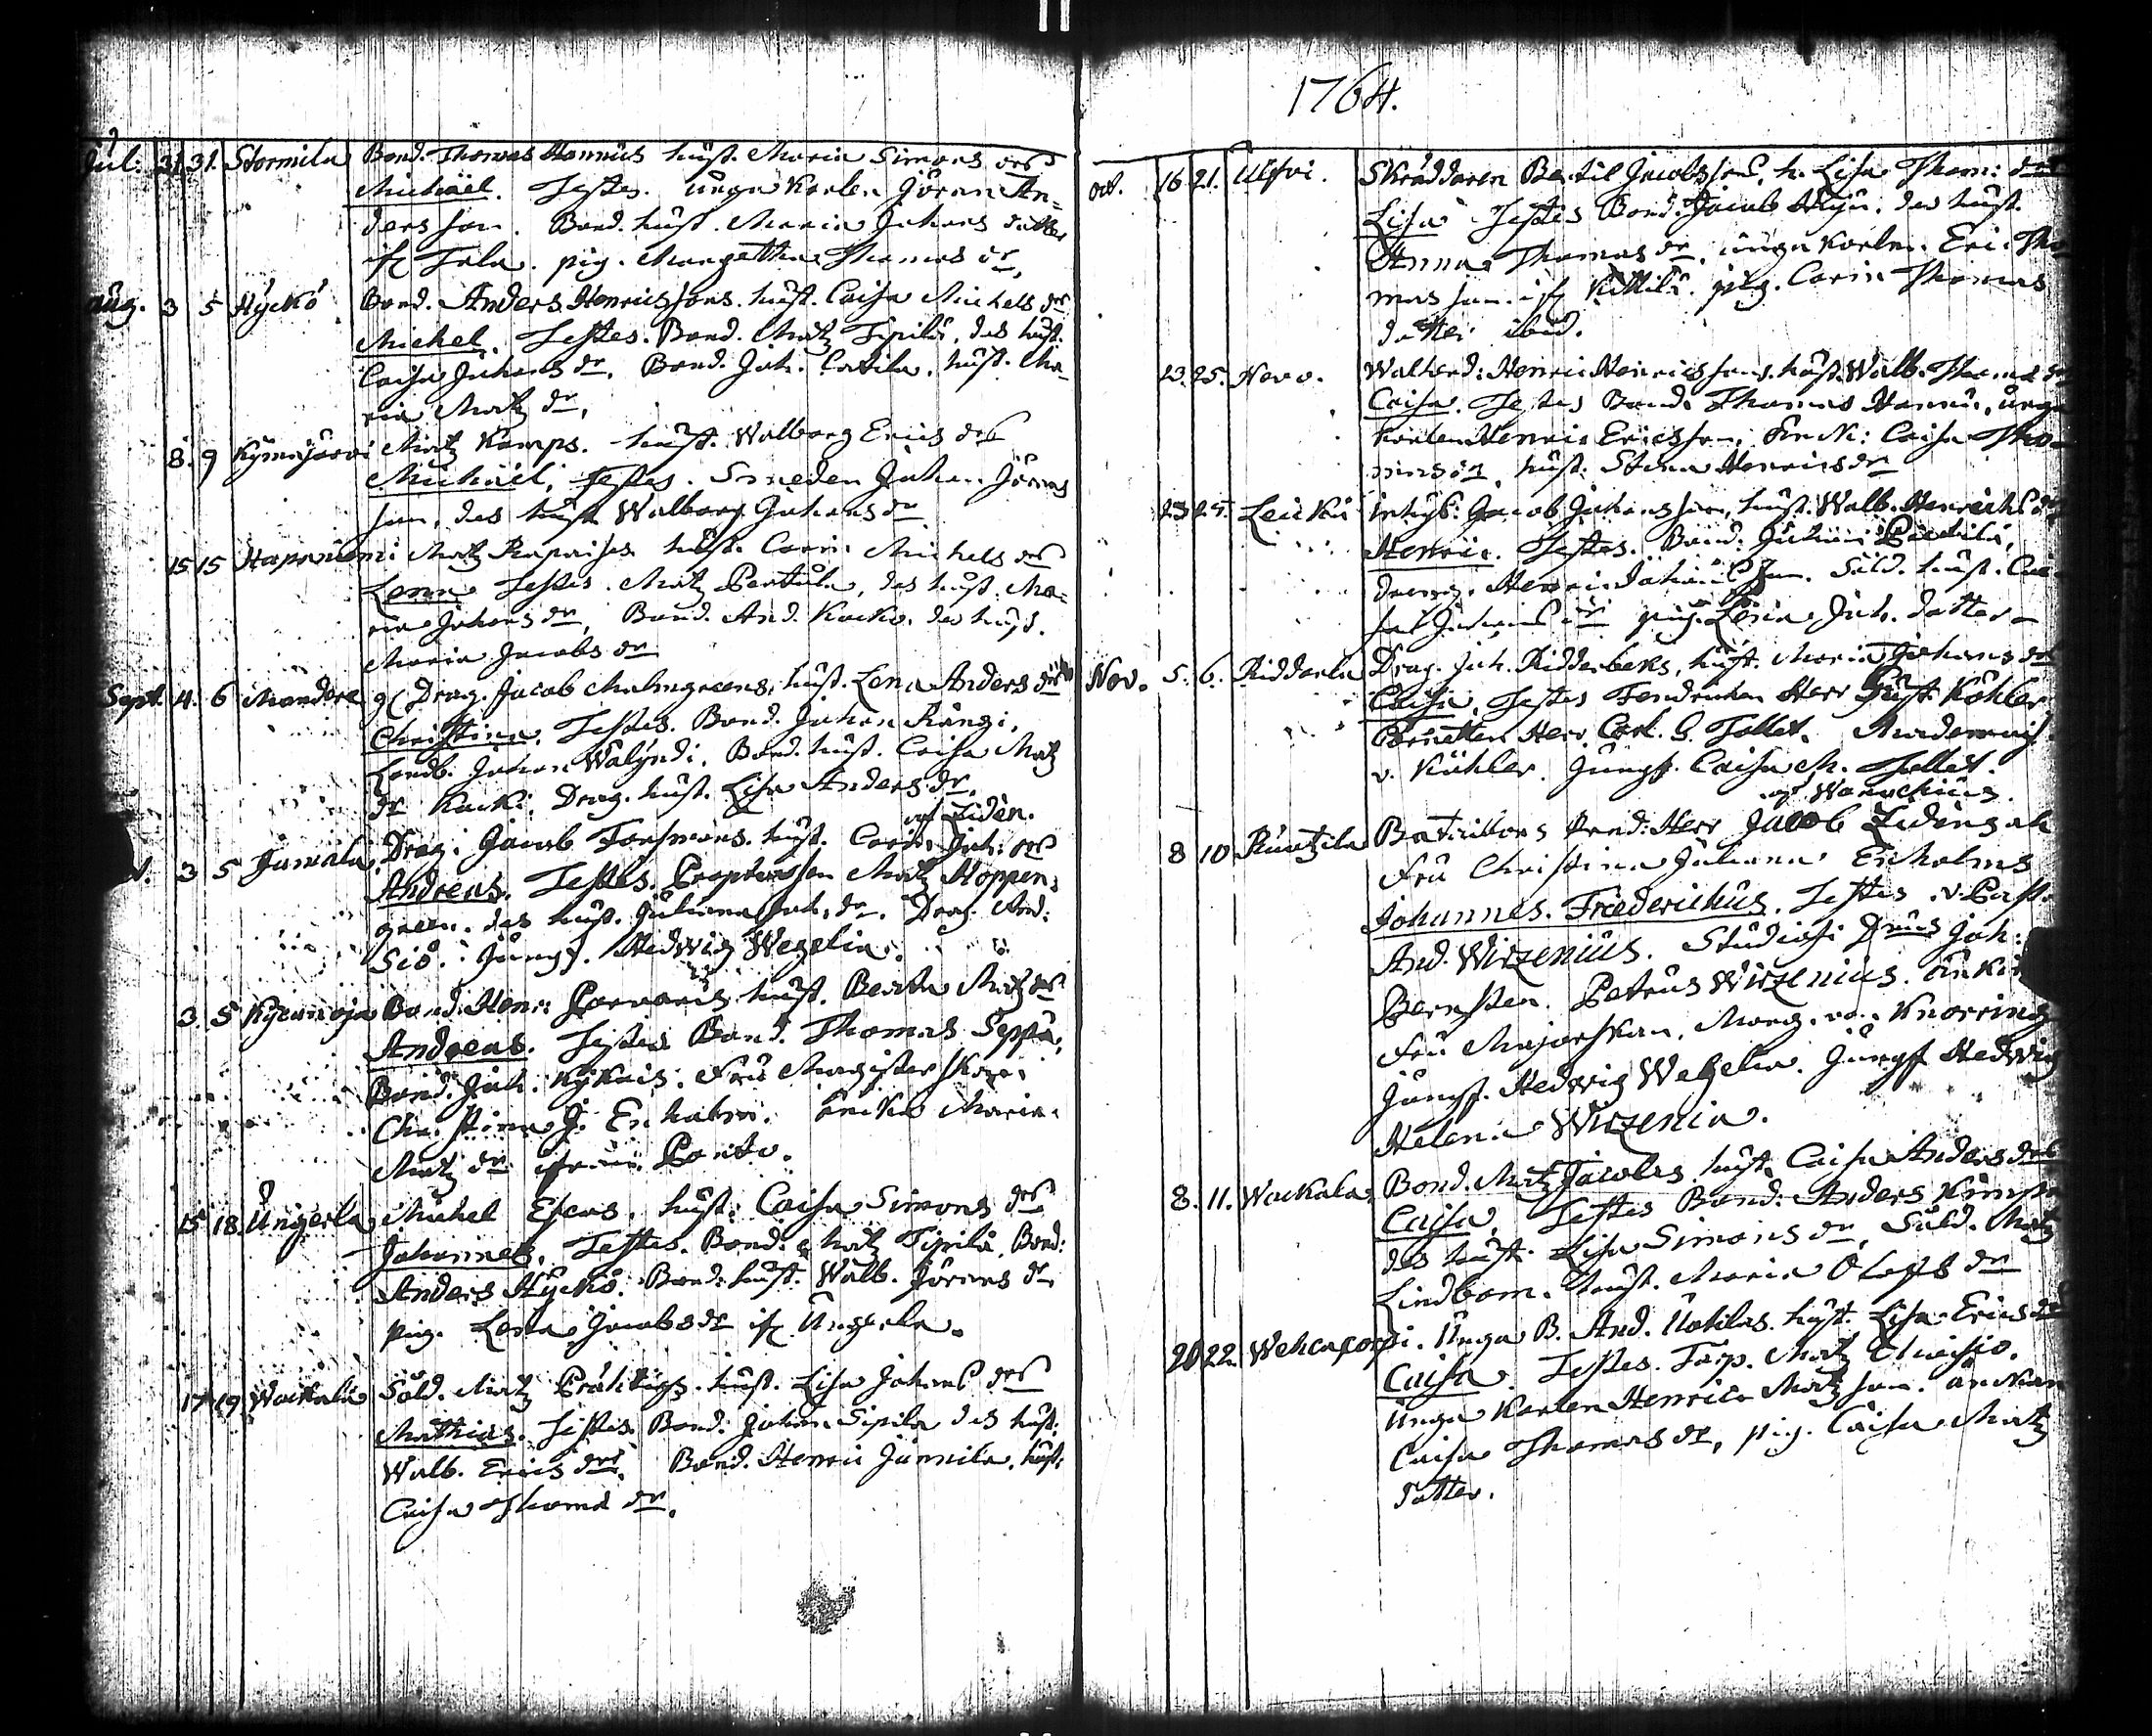 Jul: 31 31. Stormila Bond. Thomas Hannus hust. Maria Simons drs
Michäel. Testes. unga Karlen Jöran An=
ders son. Bond. hust. Maria Johans dotter
if Tala. pig. Margetha Thomas dr,
aug. 3 5 Hyckö Bond. Anders Henricssons. hust. Caisa Michels dr
Michel. Testes. Bond. Matz Sipilä, des hust.
Caisa Johans dr. Bond. Joh. Cotila. hust. Ma-
ria Matz dr,
8. 9 Kymijärvi Matz Kamps. hust. Walborg Erics drs
Michäel, Testes. Smeden Johan Jörans
son, des hust. Walborg Johans dr
15 15 Haponiemi Matz hust. Carin Michels drs
Lena Testes. Matz Pertula, des hust. Ma=
ria Johans dr, Bond. And. Kacko. des hust.
Maria Jacobs dr
Sept. 4. 6 Mandere Drag. Jacob Malmgreens, hust. Lena Anders drs
Christina. Testes. Bond. Johan Rängi,
Landb. Johan Walyndi, Bond. hust. Caisa Matz
dr Kacki, Drag. hust. Lisa Anders dr.
af Liden.
3 5 Jumala Drag: Jacob Forsmans. hust. Carin Joh: drs
Andreas. Testes. Matz Hoppen,
green. des hust. Juliana Joh. dr. Drag. And:
Siö. Jungf. Hedwig Wegelia.
3. 5 Kycanoja Bond. Henr: hust. Beata Matz drs
Andreas. Testes Bond. Thomas Seppä,
Bond. Joh. Kykais. Fru Magister
Christina J. Enholm. änka Maria
Matz dr
15 18. Ungerla Michel Escus. hust: Caisa Simons drs
Johannes, Testes. Bond: Matz Sipilä, Bond:
Anders Hyckö. Bond: hust. Walb. Jörans dr
pig. Lena Jacobs dr if Ungerla.
17 19. Wackala Sold. Matz hust. Lisa Johans drs
Mathias. Testes. Bond: Johan Sipila des hust.
Walb. Erics drs. Bond. Henric Junnila, hust.
Caisa Thoma dr.
1764.
oct. 16 21. Skräddaren Bertil Jacobssons, h. Lisa Thom: drs
Lisa Testes Bond. Jacob des hust.
Anna Thomas dr, unga Karlen. Eri. Tho
mas son. if Kittilä. pig. Carin Thomas
dotter ibid.
23. 25. Novo. Henric Henrics sons. hust. Walb. Thomas dr
Caisa. Testes Bond. Thomas Hannu, unga
Karlen Henric Ericsson, Caisa Tho-
hust: Stina Henrics dr
23 25. Leickü Inhys: Jacob Johansson, hust. Walb. Henrichs dr
Henric. Testes. Bond: Johan
dreng. Henric Johans son. Sold. hust. Cai
sa Johans dr pig. Lena Joh. dotter
Nov. 5. 6. Ridderla Drag. Joh. Ridderbeks, hust. Maria Johans dr
Caisa, Testes Fendriken Herr Gust. Köhler
Cornetten Herr Carl. G. Tollet.
v. Köhler. Jungf. Caisa M. Tollet.
8 10 Runtzila Batailions Pred: Herr Jacob Lidens ah
Fru Christina Juliana Enholms
Johannes. Friederichus. Testes v. Past.
And. Wirzenius. Studiosi Dnus Joh:
Bernsten. Petrus Wirzenius. änke
Fru Majorskan, Marg. von Knorring
Jungf. Hedwig Wegelia. Jungf Hedwig
Helena Wirzenia.
8. 11. Wackala Bond. Matz Jacobs hust. Caisa Anders drs
Caisa, Testes Bond: Anders
des hust. Lisa Simons dr, Sold. Matz
Lindbom. hust. Maria Olofs dr
20 22. Wehcaporpi. Unga B. And. Uotilas. hust. Lisa Erics dr
Caisa. Testes. Torp. Matz
Unga Karlen Henrich Matz son. änkan
Caisa Thomas dr, pig. Caisa Matz
dotter.